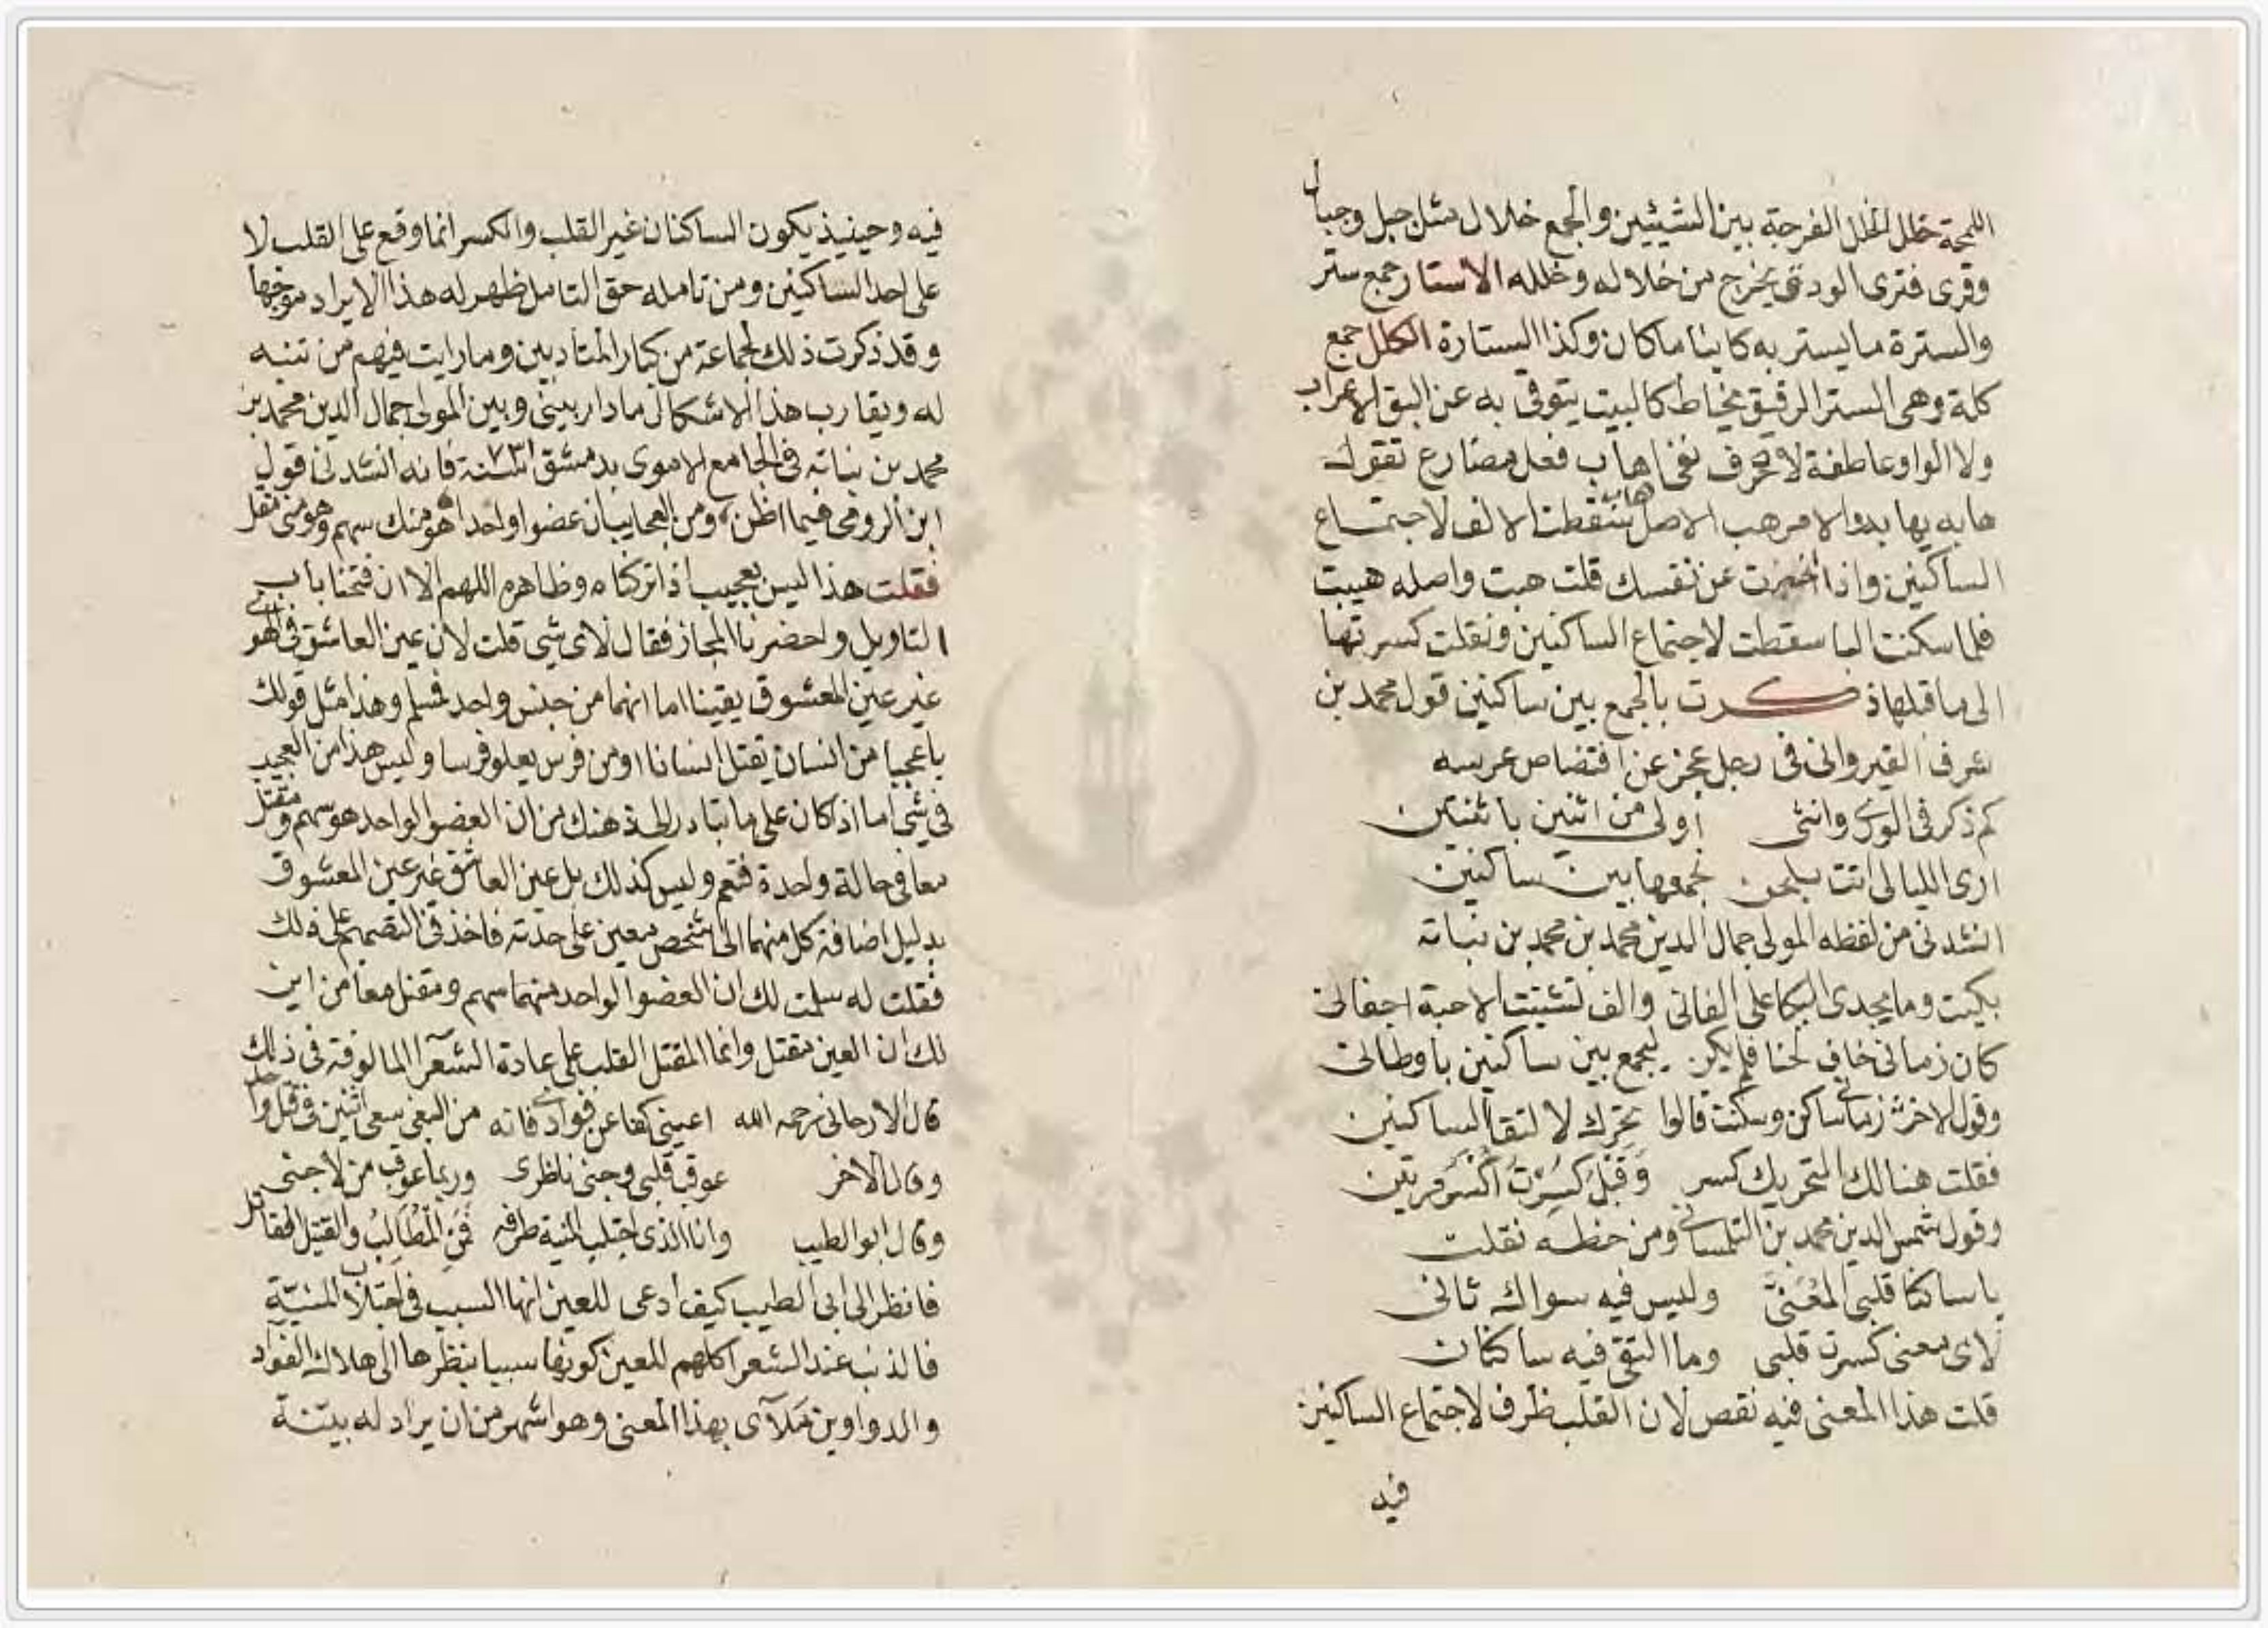 اللمحة خلل الخلل الفرجة بين الشيئين والجمع خلال مثل جبل وجبال
وقرى فترى الودق يخرج من خلاله وخلله الاستار جمع ستر
والسترة ما يستر به كاينا ما كان وكذا الستارة الكلل جمع
كلة وهى الستر الرقيق يخاط كالبيت يتوقى به عن البق الاعراب
ولا الواو عاطفة لا حرف نفى اهاب فعل مضارع تقول
هابه يهابه والامر هب الاصل هاب سقطت الالف لاجتماع
الساكنين واذا اخبرت عن نفسك قلت هبت واصله هيبت
فلما سكنت اليا سقطت لاجتماع الساكنين ونقلت كسرتها
الى ما قبلها ذكرت بالجمع بين ساكنين قول محمد بن
شرف القيروانى فى رجل عجز عن افتضاض عرسه
كم ذكر فى الورى وانثى اولى من اثنين باثنتين
ارى الليالى اتت بلحن لجمعها بين ساكنين
انشدنى من لفظه المولى جمال الدين محمد بن محمد بن نباته
بكيت وما يجدى البكا على الفانى والف تشتيت الاحبة اجفانى
كان زمانى خاف لحنا فلم يكن ليجمع بين ساكنين باوطانى
وقول الاخر زمانى ساكن وسكنت قالوا تحرك لالتقا الساكنين
فقلت هنالك التحريك كسر وقبل كسرت اكسر مرتين
وقول شمس الدين محمد بن التلمسانى ومن خطه نقلت
يا ساكنا قلبى المعنى وليس فيه سواك ثانى
لاى معنى كسرت قلبى وما التقى فيه ساكنان
قلت هذا المعنى فيه نقص لان القلب ظرف لاجتماع الساكنين
فيه
فيه وحينيذ يكون الساكنان غير القلب والكسر انما وقع على القلب لا
على احد الساكنين ومن تامله حق التامل ظهر له هذا الايراد موجها
وقد ذكرت ذلك لجماعة من كبار المتادبين وما رايت فيهم من تنبه
له ويقارب هذا الاشكال ما دار بينى وبين المولى جمال الدين محمد بن
محمد بن نباته فى الجامع الاموى بدمشق سنة ٧٣١ فانه انشدنى قول
ابن الرومى فيما اظن ومن العجايب ان عضوا واحدا هو منك سهم وهو منى مقتل
فقلت هذا ليس بعجيب اذا تركناه وظاهره اللهم الا ان فتحنا باب
التاويل واحضرنا المجاز فقال لاى شى قلت لان عين العاشق فى الهوى
غير عين المعشوق يقينا اما انهما من جنس واحد فمسلم وهذا مثل قولك
يا عجبا من انسان يقتل انسانا او من فرس يعلو فرسا وليس هذا من العجيب
فى شى اما اذ كان على ما يتبادر الى ذهنك من ان العضو الواحد هو سهم ومقتل
معا فى حالة واحدة فنعم وليس كذلك بل عين العاشق غير عين المعشوق
بدليل اضافة كل منهما الى شخص معين على حدته فاخذ فى التصميم على ذلك
فقلت له سلمت لك ان العضو الواحد منهما سهم ومقتل معا من اين
لك ان العين مقتل وانما المقتل القلب على عادة الشعرا المالوفة فى ذلك
قال الارجانى رحمه الله اعينى كفا عن فوادى فانه من البغى سعى اثنين فى قتل واحد
وقال الاخر عوقب قلبى وجنى ناظرى وربما عوقب من لا جنى
وقال ابو الطيب وانا الذى اجتلب المنية طرفه فمن المطالب والقتيل القاتل
فانظر الى ابى الطيب كيف ادعى للعين انها السبب فى اجتلاب المنية
فالذنب عند الشعرا كلهم للعين كونها سببا بنظرها الى هلاك الفواد
والدواوين ملآى بهذا المعنى وهو اشهر من ان يراد له بينة